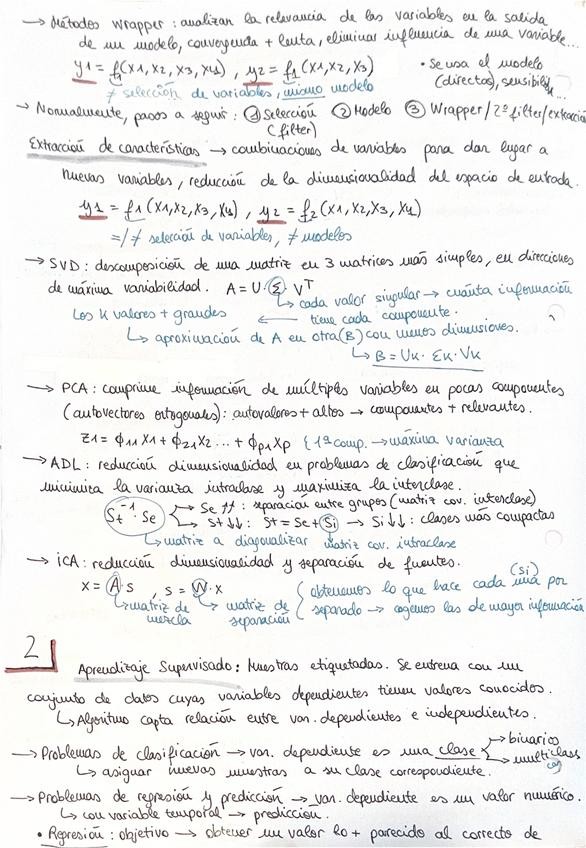 → Métodos wrapper : analizan la relevancia de las variables en la salida
de un modelo, convergencia + lenta, eliminar influencia de una variable...
y1 = f1(x1, x2, x3, x4) , y2 = f1(x1, x2, x3)
• Se usa el modelo
(directos), sensibilid...
≠ selección de variables, mismo modelo
→ Normalmente, pasos a seguir : ① Selección ② Modelo ③ Wrapper/2º filter/extracción
(filter)
Extracción de características → combinaciones de variables para dar lugar a
nuevas variables, reducción de la dimensionalidad del espacio de entrada.
y1 = f1 (x1, x2, x3, x4) , y2 = f2 (x1, x2, x3, x4)
=/≠ selección de variables, ≠ modelos
→ SVD : descomposición de una matriz en 3 matrices más simples, en direcciones
de máxima variabilidad. A = U · Σ · V^T
↳ cada valor singular → cuánta información
tiene cada componente.
Los K valores + grandes ←
↳ aproximación de A en otra (B) con menos dimensiones.
↳ B = Uk · Σk · Vk
→ PCA : comprime información de múltiples variables en pocas componentes
(autovectores ortogonales) : autovalores + altos → componentes + relevantes.
z1 = ϕ11 x1 + ϕ21 x2 ... + ϕp1 xp { 1ª comp. → máxima varianza
→ ADL : reducción dimensionalidad en problemas de clasificación que
minimiza la varianza intraclase y maximiza la interclase.
St^-1 · Se
→ Se ↑↑ : separación entre grupos (matriz cov. interclase)
→ St ↓↓ : St = Se + Si → Si ↓↓ : clases más compactas
↳ matriz a diagonalizar matriz cov. intraclase
→ iCA : reducción dimensionalidad y separación de fuentes.
x = A · s , s = W · x
↳ matriz de mezcla
↳ matriz de separación
{ obtenemos lo que hace cada una (si) por
separado → cogemos las de mayor información
2
Aprendizaje Supervisado : Muestras etiquetadas. Se entrena con un
conjunto de datos cuyas variables dependientes tienen valores conocidos.
↳ Algoritmo capta relación entre var. dependientes e independientes.
→ Problemas de clasificación → var. dependiente es una clase
→ binarios
→ multiclass
↳ asignar nuevas muestras a su clase correspondiente.
→ Problemas de regresión y predicción → var. dependiente es un valor numérico.
↳ con variable temporal → predicción.
• Regresión : objetivo → obtener un valor lo + parecido al correcto de